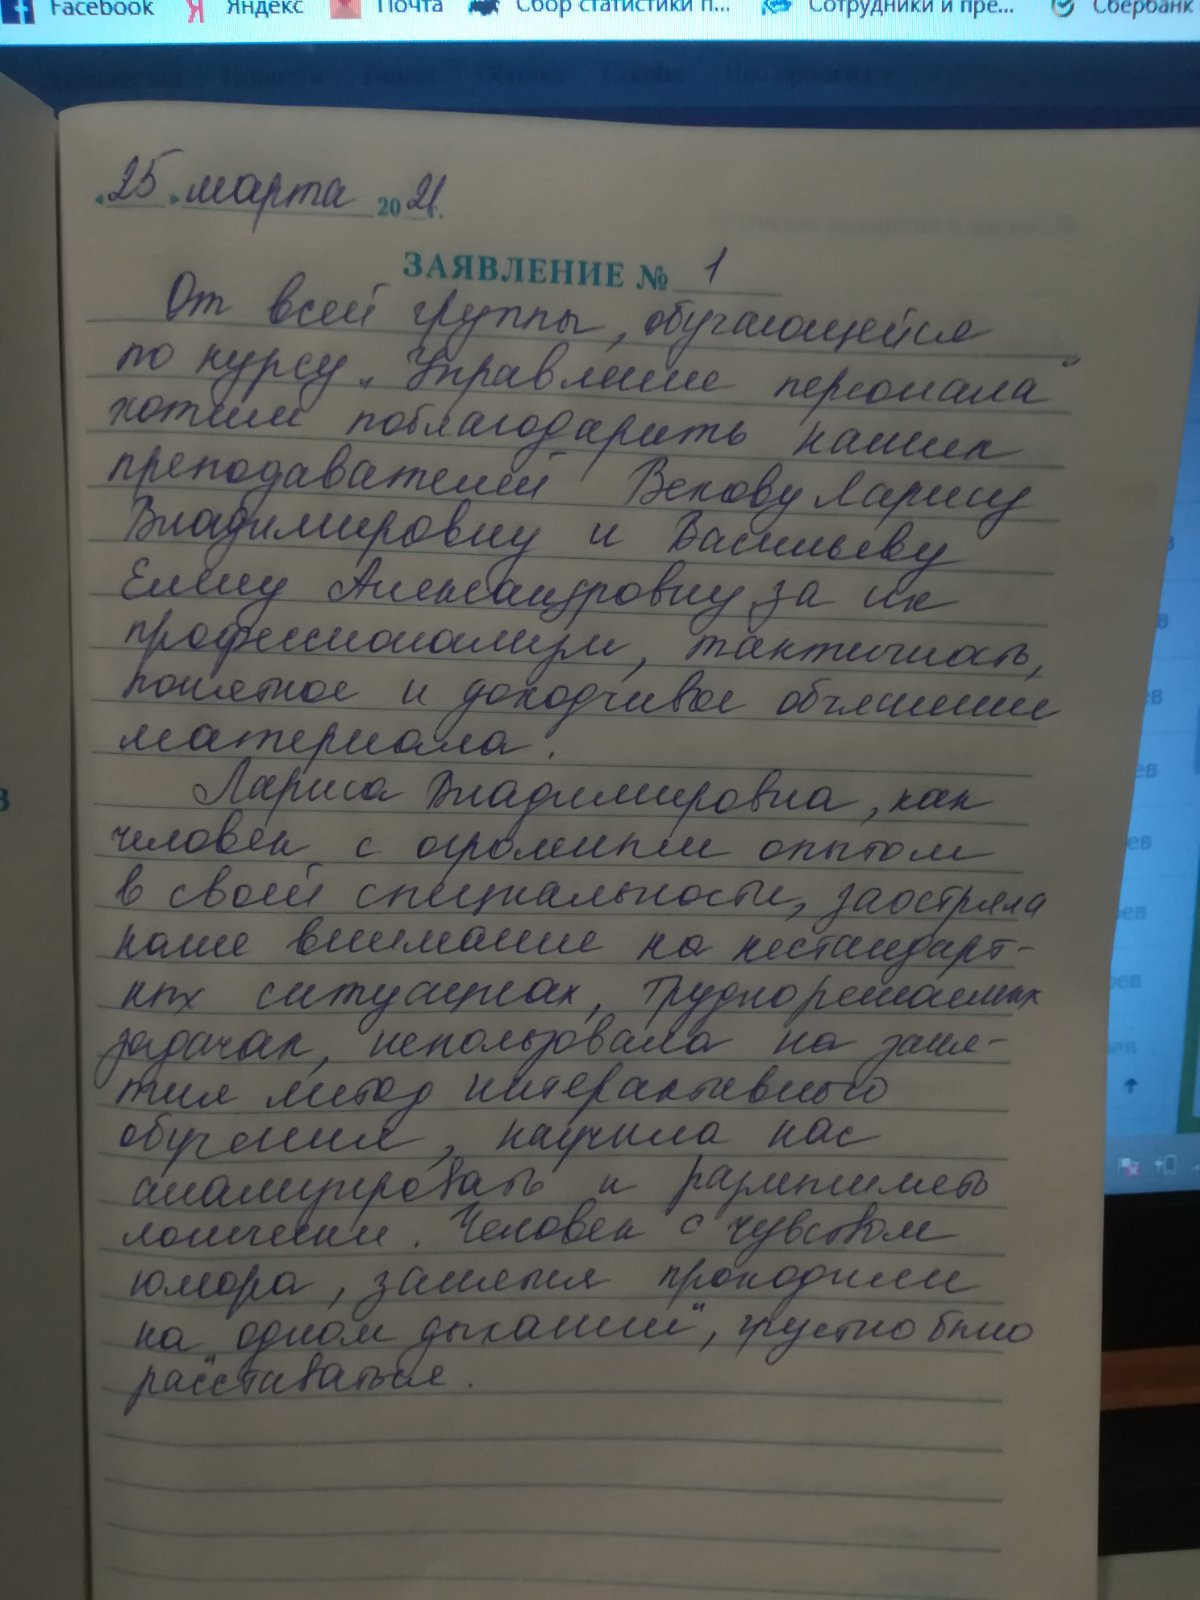 Facebook Яндекс Почта Сбор статистики п... Сотрудники и пре... Сбербанк
«25» марта 2021.
ЗАЯВЛЕНИЕ № 1
От всей группы, обучающейся
по курсу „Управление персонала"
хотим поблагодарить наших
преподавателей Векову Ларису
Владимировну и Васильеву
Елену Александровну за их
профессионализм, тактичность,
понятное и доходчивое объяснение
материала.
Лариса Владимировна, как
человек с огромным опытом
в своей специальности, заостряла
наше внимание на нестандарт-
ных ситуациях, труднорешаемых
задачах, использовала на заня-
тия метод интерактивного
обучения, научила нас
анализировать и размышлять
логически. Человек с чувством
юмора, занятия проходили
на „одном дыхании", грустно было
расставаться.